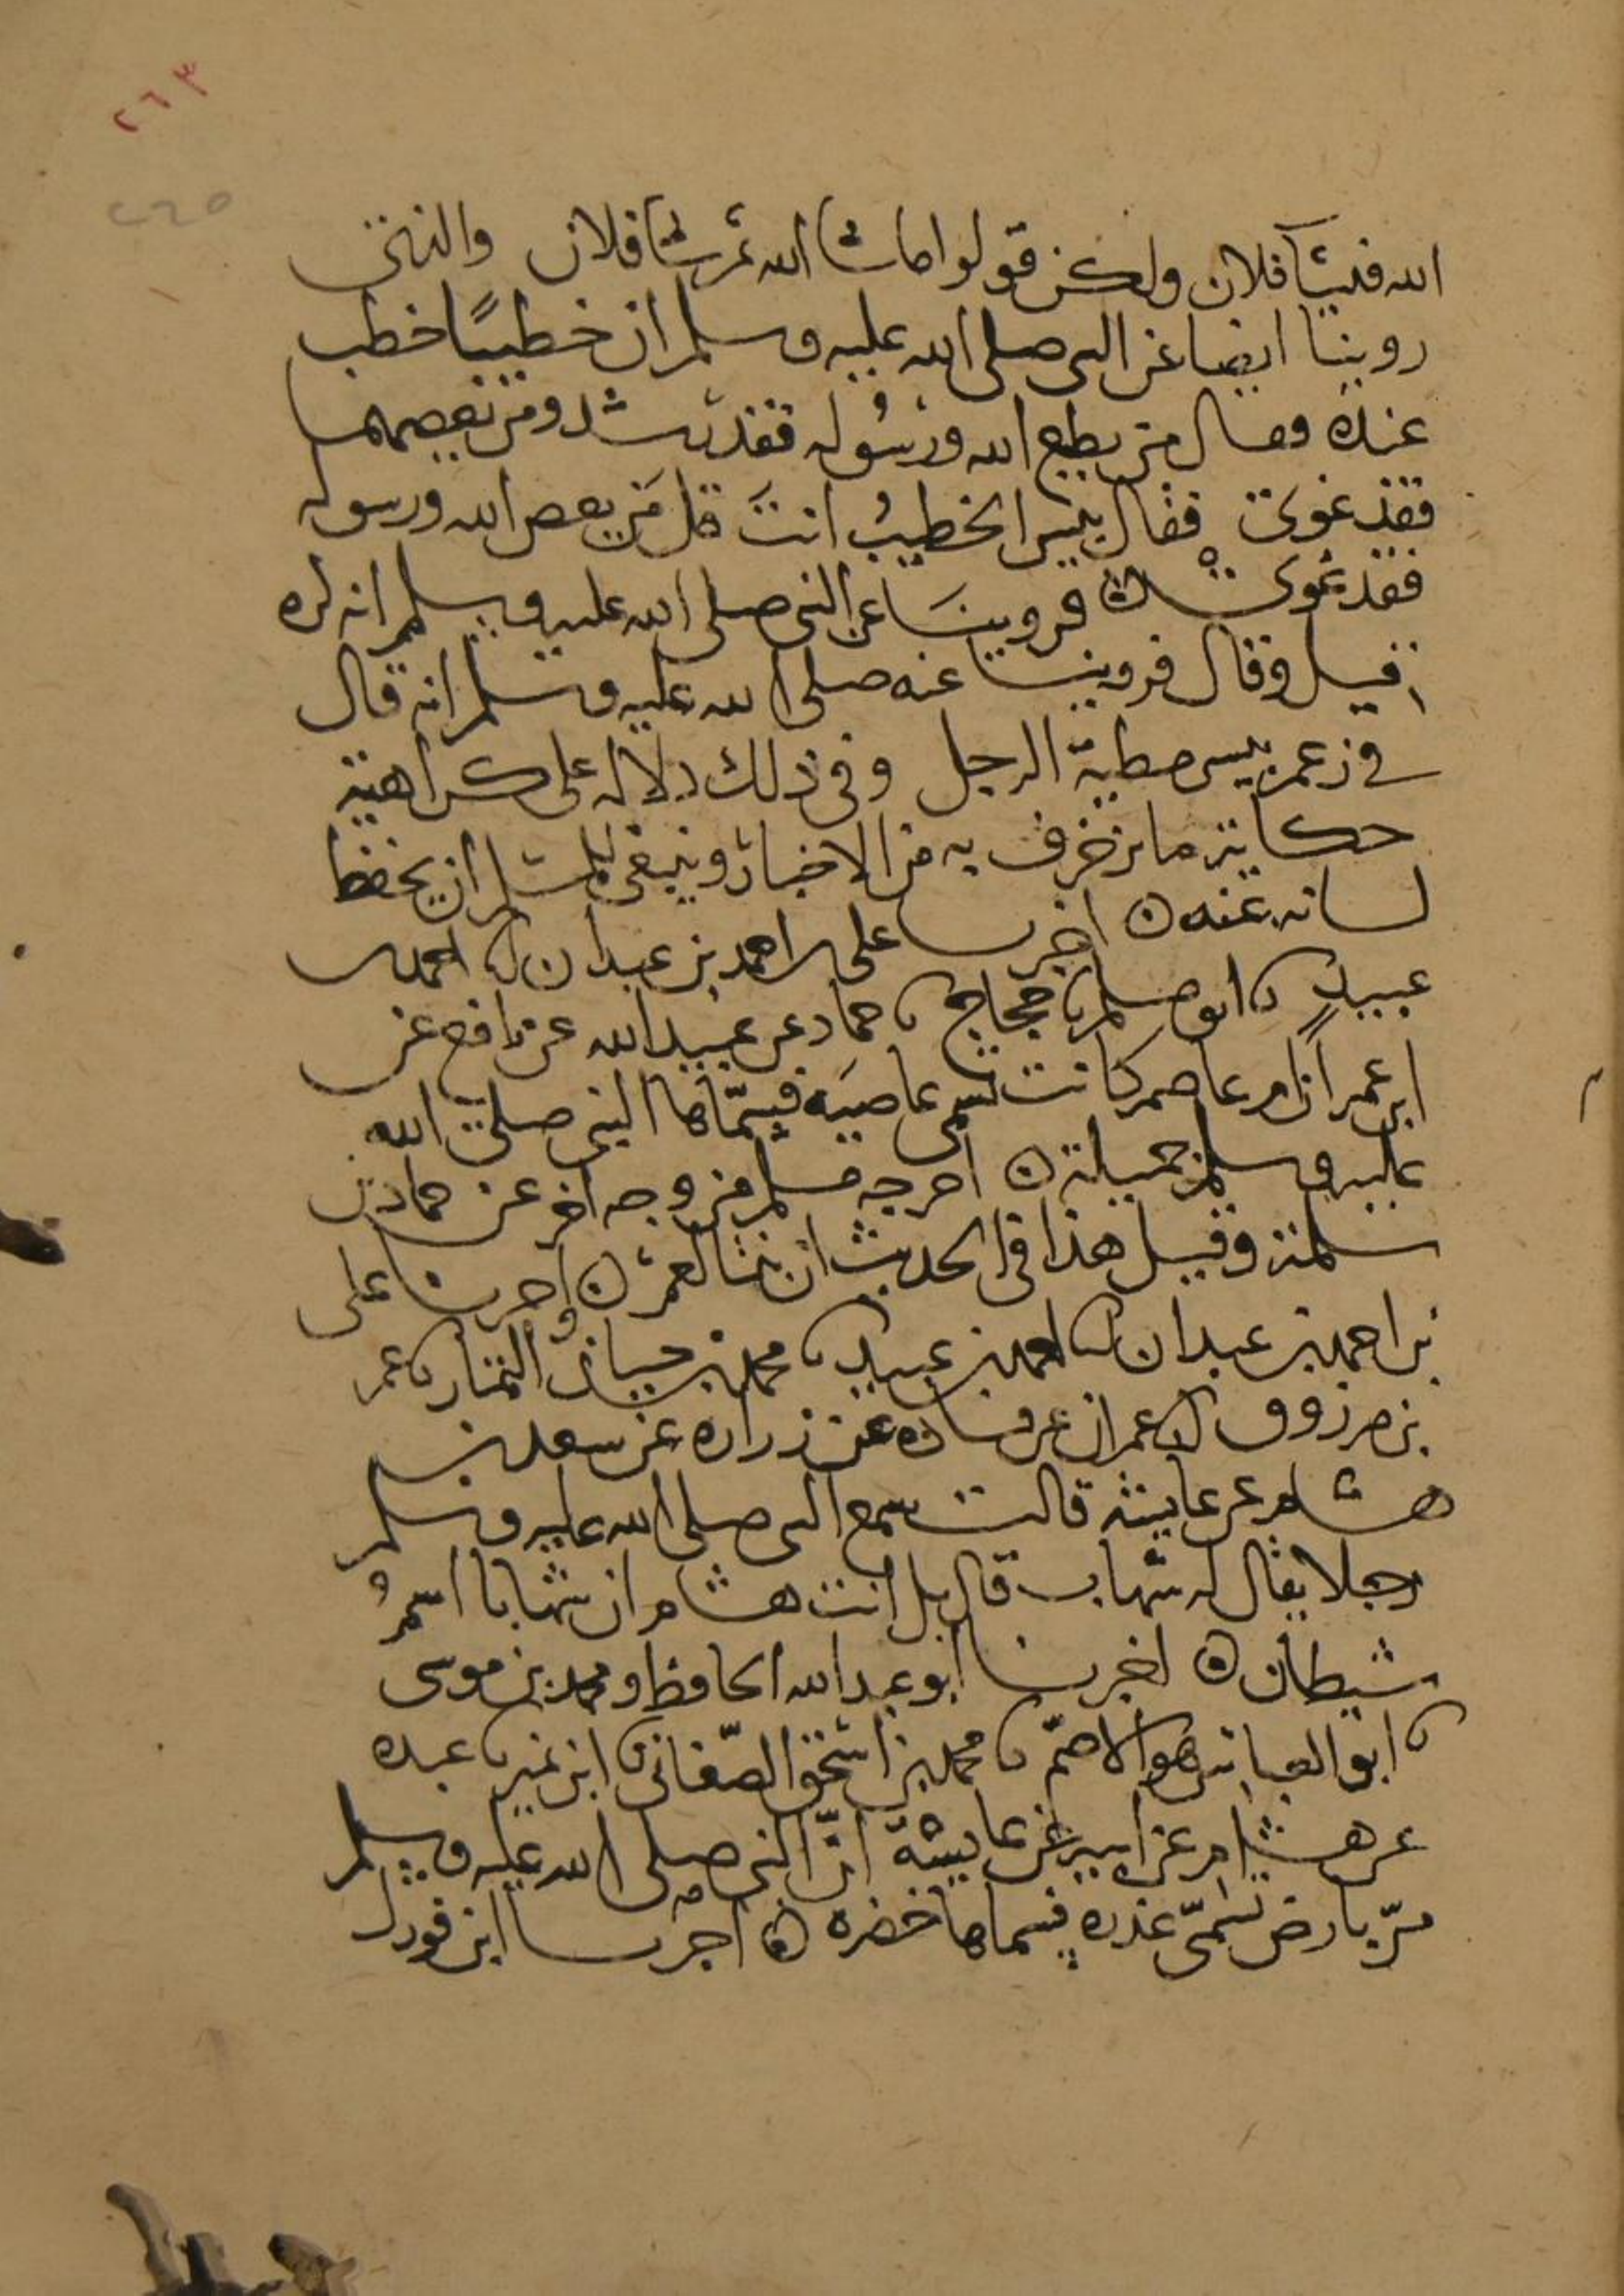 ٢٦٣
٢٦٥
الله فشآ فلان ولكن قولوا ماشا الله ثم شا فلان والذي
روينا ايضا عن النبي صلى الله عليه وسلم ان خطيبًا خطب
عنده وقال من يطع الله ورسوله فقد رشد ومن يعصهما
فقد غوى فقال بئس الخطيب انتَ قل مَن يعص الله ورسوله
فقد غوى وروينا عن النبي صلى الله عليه وسلم انه كره
قيل وقال وروينا عنه صلى الله عليه وسلم انه قال
في زعم بيس مطية الرجل وفي ذلك دلاله على كراهية
حكاية ما يزخرف به من الاخبار وينبغي للمسلم ان يحفظ
لسانه عنه ه اخبرنا علي بن احمد بن عبدان انا احمد بن
عبيد نا ابو مسلم نا حجاج نا حماد عن عبيد الله عن نافع عن
ابن عمر ان ام عاصم كانت تسمى عاصيَه فسمّاها النبي صلى الله
عليه وسلم جميلة ه اخرجه مسلم من وجه اخر عن حماد بن
سلمة وقيل هذا في الحديث ان بنتا لعمر ه واخبرنا علي
بن احمد بن عبدان انا احمد بن عبيد نا محمد بن حيان التمار نا عمر
بن مرزوق انا عمران عن قتاده عن زراره عن سعد بن
هشام عن عايشه قالت سمع النبي صلى الله عليه وسلم
رجلا يقال له شهاب قال بل انت هشام ان شهابا اسمُ
شيطان ه اخبرنا ابو عبد الله الحافظ ومحمد بن موسى
نا ابو العباس هو الاصمّ نا محمد بن اسحق الصّغاني نا ابن نمير نا عبده
عن هشام عن ابيه عن عايشة انّ النبي صلى الله عليه وسلم
مرّ بارض تسمّى عذره فسماها خضره ه اخبرنا ابن فورك